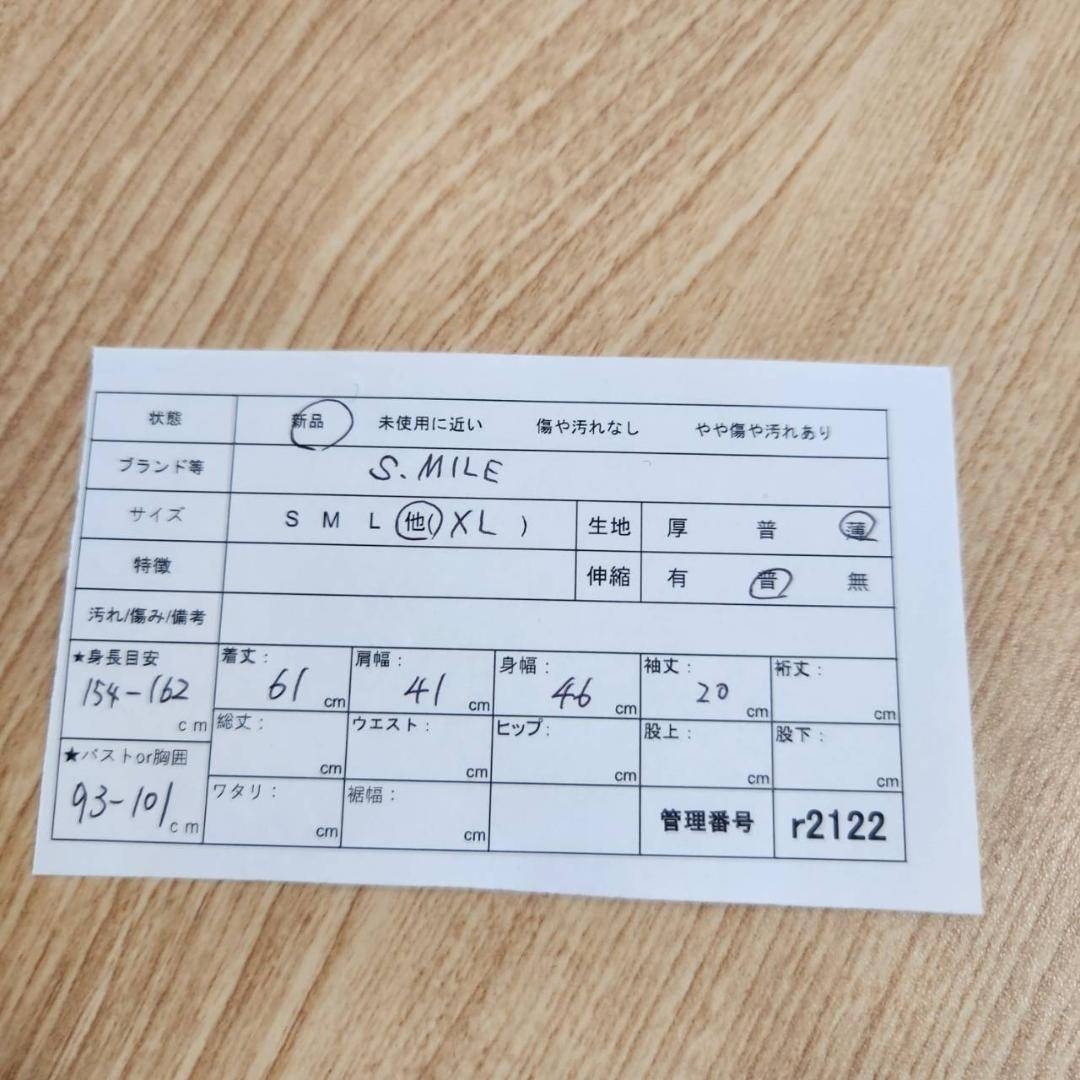 状態 新品 未使用に近い 傷や汚れなし やや傷や汚れあり
ブランド等 S.MILE
サイズ S M L 他( XL ) 生地 厚 普 薄
特徴 伸縮 有 普 無
汚れ/傷み/備考
★身長目安 着丈: 肩幅: 身幅: 袖丈: 裄丈:
154-162 cm 61 cm 41 cm 46 cm 20 cm cm
総丈: ウエスト: ヒップ: 股上: 股下:
cm cm cm cm cm
★バストor胸囲 ワタリ: 裾幅: 管理番号 r2122
93-101 cm cm cm